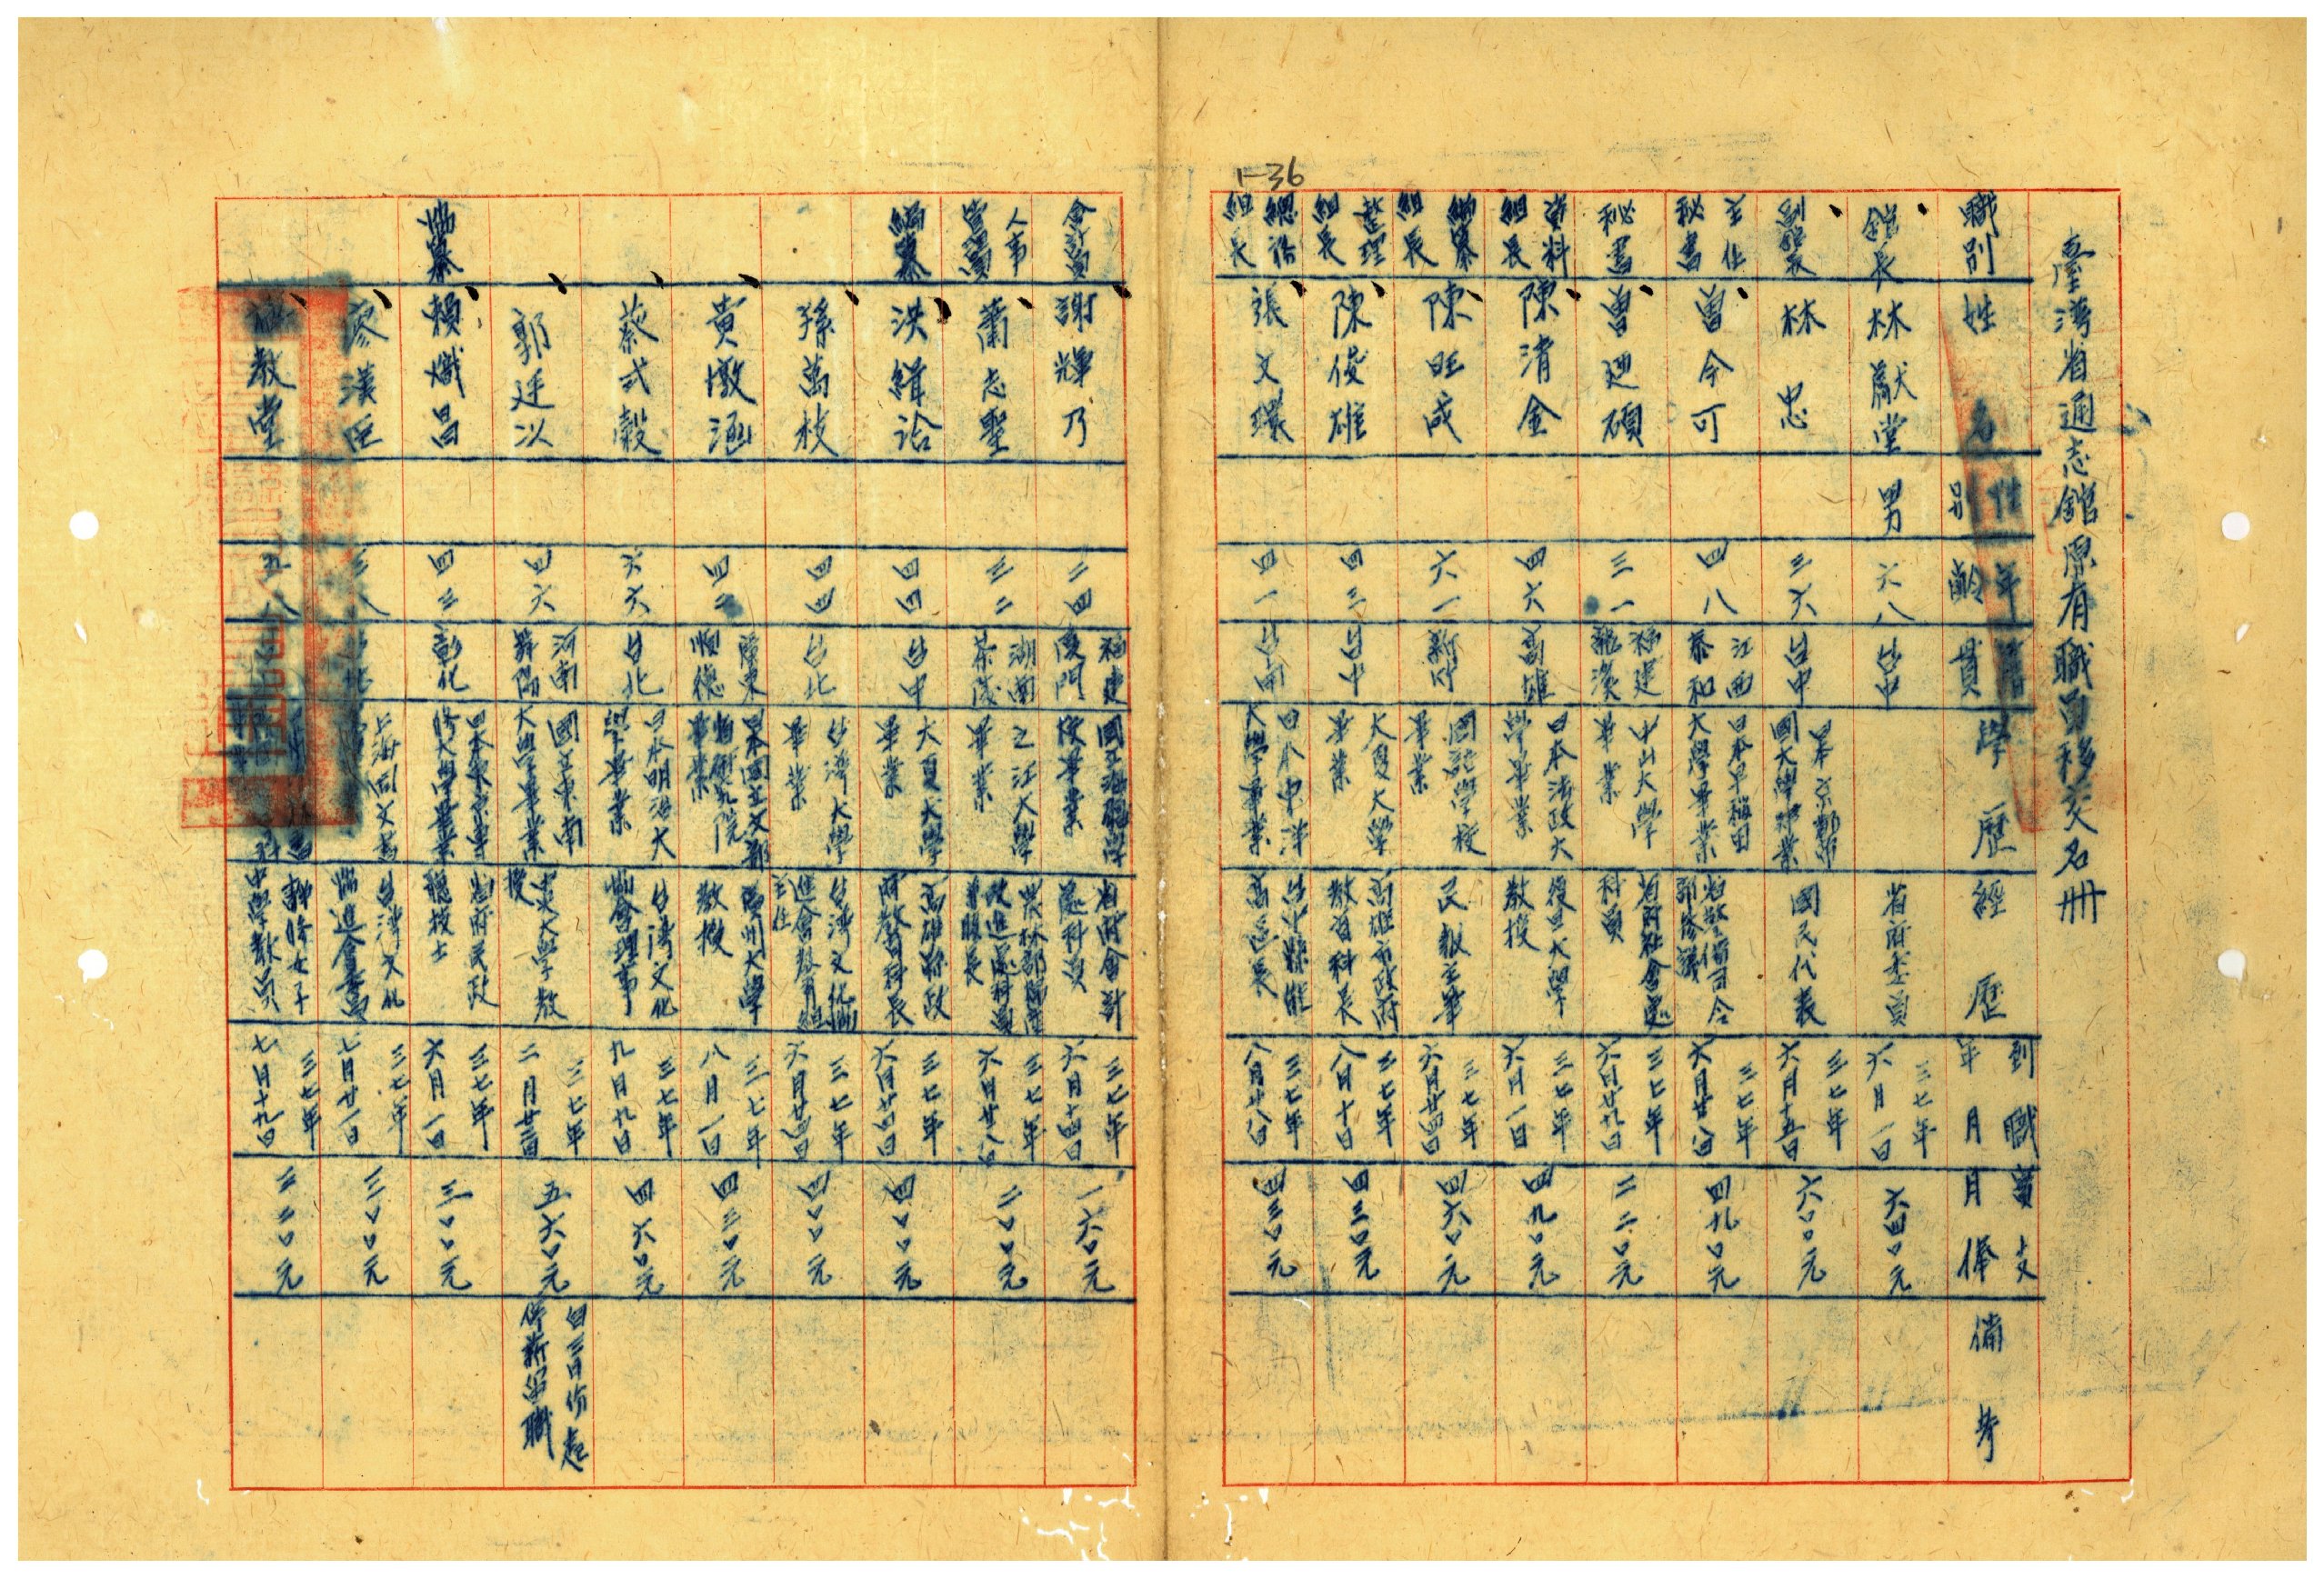 1-36
臺灣省通志館原有職員移交名冊
職別 姓名 性別 年齡 籍貫 學歷 經歷 到職年月 實支月俸 備考
館長 林獻堂 男 六八 台中 省府委員 三七年六月一日 六四〇元
副館長 林忠 三六 台中 日本京都帝國大學畢業 國民代表 三七年六月十五日 六〇〇元
主任秘書 曾今可 四八 江西泰和 日本早稻田大學畢業 省警備司令部參議 三七年六月廿八日 四九〇元
秘書 曾迺碩 三一 福建龍溪 中山大學畢業 省府社會處科員 三七年六月廿九日 二二〇元
資料組長 陳清金 四六 高雄 日本法政大學畢業 復旦大學教授 三七年六月一日 四九〇元
編纂組長 陳旺成 六一 新竹 國語學校畢業 民報主筆 三七年六月廿四日 四六〇元
整理組長 陳俊雄 四三 台中 大夏大學畢業 高雄市政府教育科長 三七年八月十日 四三〇元
總務組長 張文環 四一 台南 日本東洋大學畢業 台中縣能高區長 三七年八月廿八日 四三〇元
會計員 謝輝乃 二四 福建廈門 畢業 省府會計處科員 三七年六月十四日 一六〇元
人事管理員 蕭志聖 三二 湖南茶陵 之江大學畢業 三七年六月廿八日 二〇〇元
編纂 洪緝洽 四四 台中 大夏大學畢業 高雄縣政府教育科長 三七年六月廿四日 四〇〇元
孫萬枝 四四 台北 台灣大學畢業 台灣文化協進會教育組主任 三七年六月廿四日 四〇〇元
黃墩涵 四二 廣東順德 畢業 廣州大學教授 三七年八月一日 四三〇元
蔡式穀 六六 台北 日本明治大學畢業 台灣文化協會理事 三七年九月九日 四六〇元
郭廷以 四六 河南舞陽 國立東南大學畢業 中央大學教授 三七年二月廿三日 五六〇元 自三月份起停薪留職
編纂 賴熾昌 四三 彰化 日本東京專修大學畢業 省府民政廳技士 三七年六月一日 三〇〇元
廖漢臣 三八 台北 上海同文書 台灣文化協進會委員 三七年七月廿一日 三〇〇元
教堂 五八 靜修女子中學教員 三七年七月十九日 三二〇元